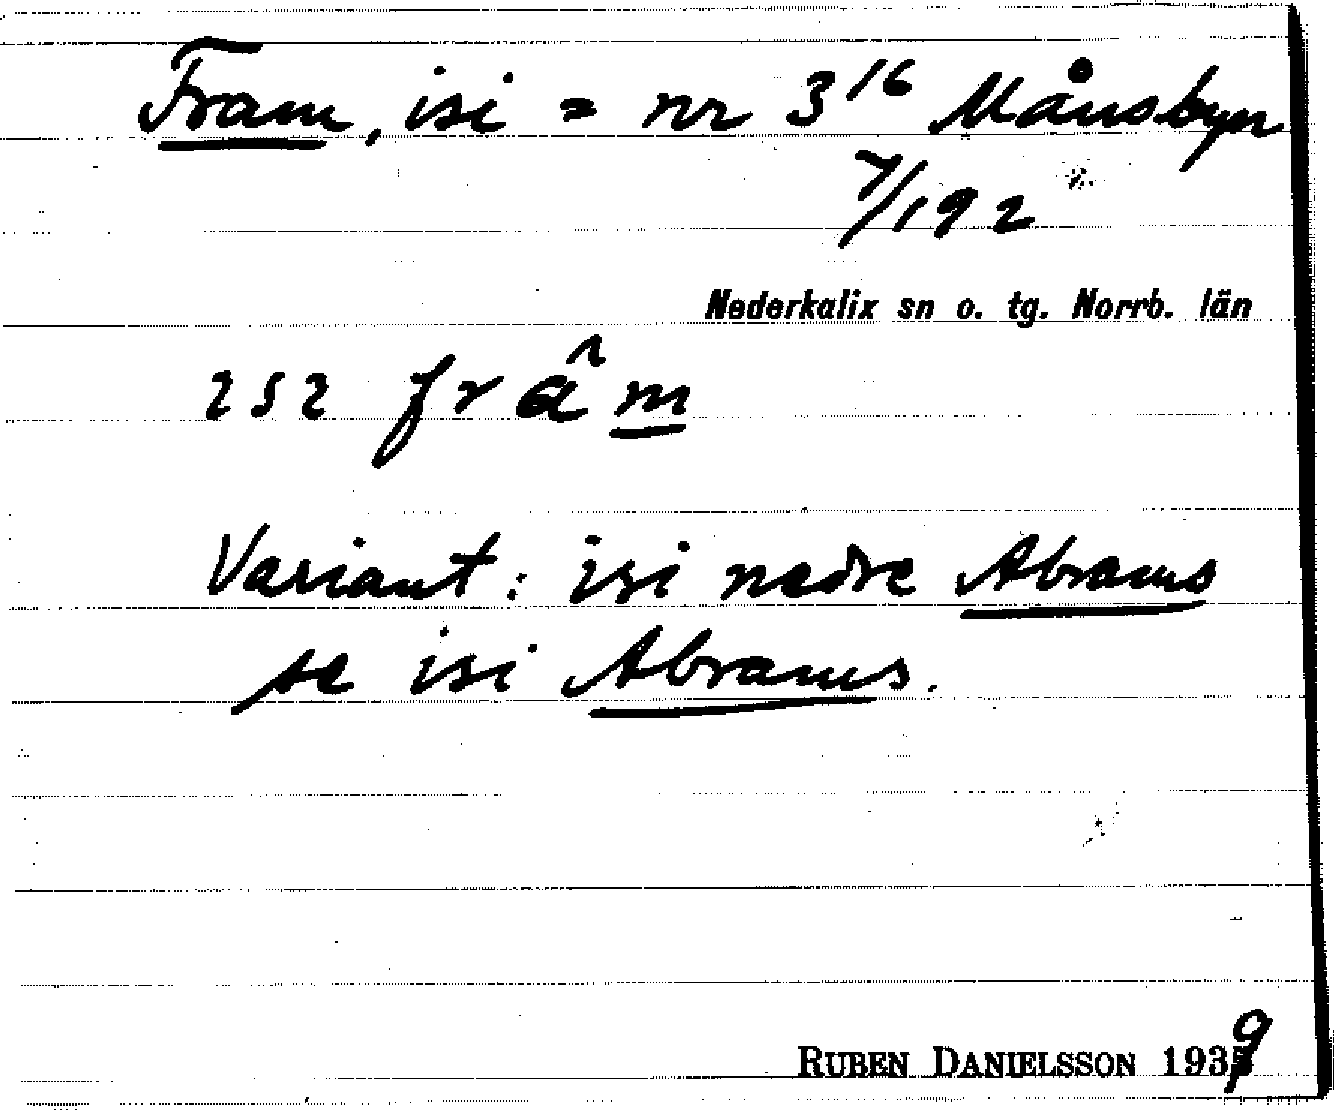 Fram, isi = nr 3¹⁶ Månsbyn
7/192
Nederkalix sn o. tg. Norrb. län
ısı frâm
Variant: isi nedre Abrams
se isi Abrams.
RUBEN DANIELSSON 1939